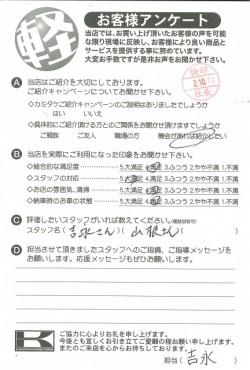 軽
お客様アンケート
当店では、お買い上げ頂いたお客様の声を可能
な限り現場に反映し、お客様により良い商品と
サービスを提供する事に努めています。
大変お手数ですが是非お声をお聞かせ下さい。
A 当店はご紹介を大切にしております。
ご紹介キャンペーンについてお聞かせ下さい
◇カミタケご紹介キャンペーンのご説明はありましたでしょうか
はい いいえ
◇具体的にご紹介頂ける方とのご関係をお聞かせ頂けますでしょうか
ご親族 ご友人 職場の方 機会があれば紹介したい
B 当店を実際にご利用になった印象をお聞かせ下さい。
◇総合的な満足度 5.大満足 4.満足 3.ふつう 2.やや不満 1.不満
◇スタッフの対応 5.大満足 4.満足 3.ふつう 2.やや不満 1.不満
◇お店の雰囲気、清掃 5.大満足 4.満足 3.ふつう 2.やや不満 1.不満
◇納車時のお車の状態 5.大満足 4.満足 3.ふつう 2.やや不満 1.不満
C 評価したいスタッフがいれば教えてください。
スタッフ名( 吉永さん )( 山根さん )
D 担当させて頂きましたスタッフへのご指摘、ご指導メッセージを
お願いします。応援メッセージもぜひお願いします。
K
ご協力に心よりお礼を申し上げます。
今後とも宜しくお引き立てご愛顧の程お願い申し上げます。
またのご来店を心からお待ちしております。
担当( 吉永 )